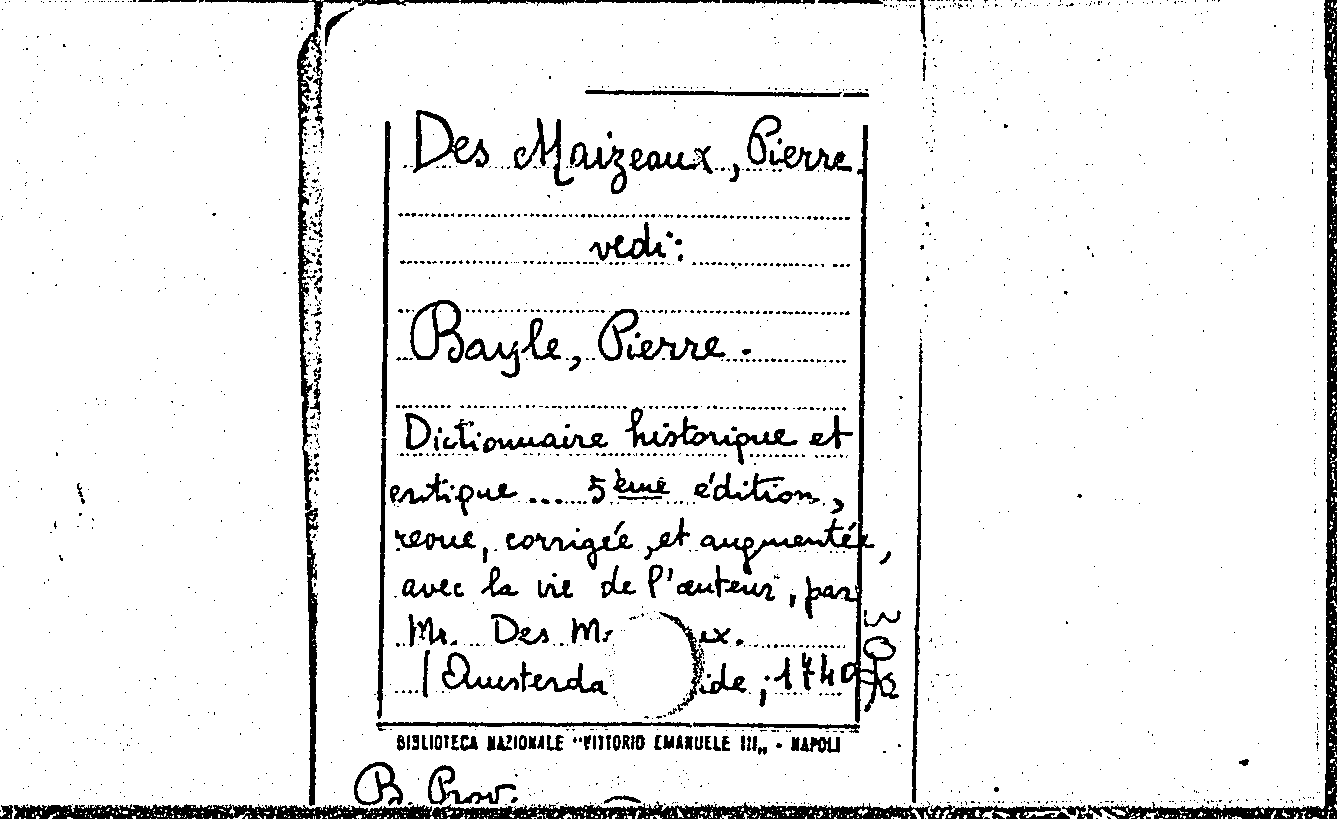 Des Maizeaux, Pierre.
vedi:
Bayle, Pierre.
Dictionnaire historique et
critique ... 5ème édition,
revue, corrigée, et augmentée,
avec la vie de l'auteur, par
Mr. Des M ux.
Amsterda ide, 1740
BIBLIOTECA NAZIONALE "VITTORIO EMANUELE III„ - NAPOLI
B. Prov.